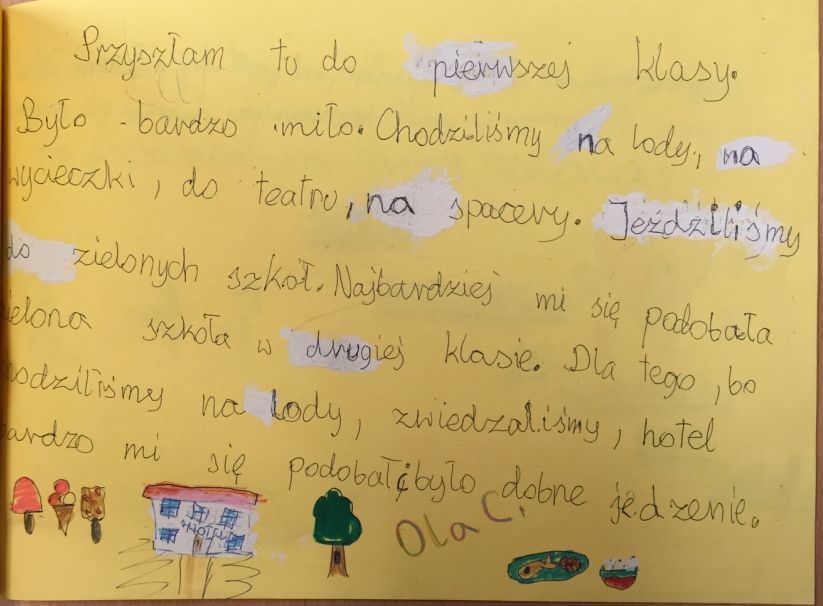 Przyszłam tu do pierwszej klasy.
Było bardzo miło. Chodziliśmy na lody, na
wycieczki, do teatru, na spacery. Jeździliśmy
do zielonych szkół. Najbardziej mi się podobała
zielona szkoła w drugiej klasie. Dla tego, bo
chodziliśmy na lody, zwiedzaliśmy, hotel
bardzo mi się podobał i było dobre jedzenie.
HOTEL
Ola C.